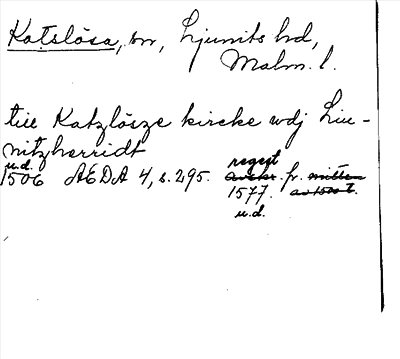 Katslösa, sn, Ljunits hd,
Malm. l.
till Katzlösze kircke wdj Liu-
nitzherridt
u.d. regest
1506 AEDA 4, s. 295. avskr. fr. mitten
1577. av 1500-t.
u.d.